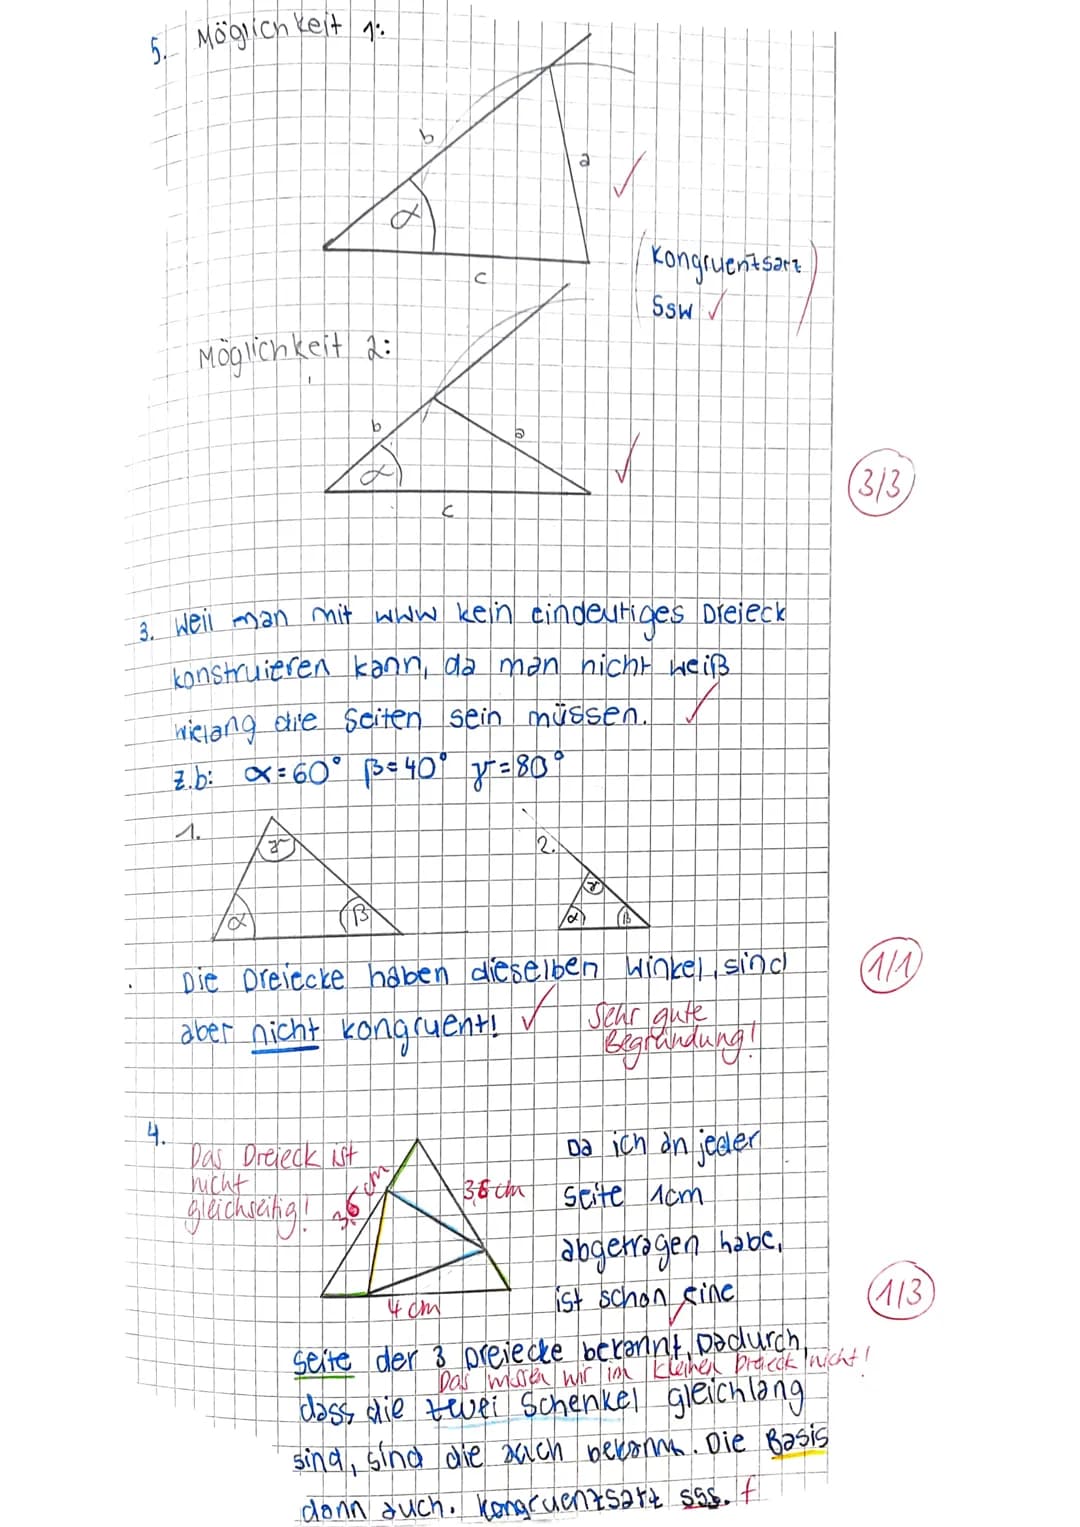 5. Möglichkeit 1:
b
a
α
c
(Kongruentsatz
Ssw)
Möglichkeit 2:
b
a
α
c
3/3
3. Weil man mit www kein eindeutiges Dreieck
konstruieren kann, da man nicht weiß
wielang die Seiten sein müssen.
z.b: α=60° β=40° γ=80°
1.
2.
γ
α
β
γ
α
β
Die Dreiecke haben dieselben Winkel, sind
aber nicht kongruent!
1/1
Sehr gute
Begründung!
4.
Das Dreieck ist
nicht
gleichseitig!
3,6 cm
3,6 cm
4 cm
Da ich an jeder
Seite 1cm
abgetragen habe,
ist schon eine
1/3
Seite der 3 Dreiecke bekannt, Dadurch,
Das wissen wir im kleinen Dreieck nicht!
dass die zwei Schenkel gleichlang
sind, sind die auch bekannt. Die Basis
dann auch. Kongruenzsatz sss. f